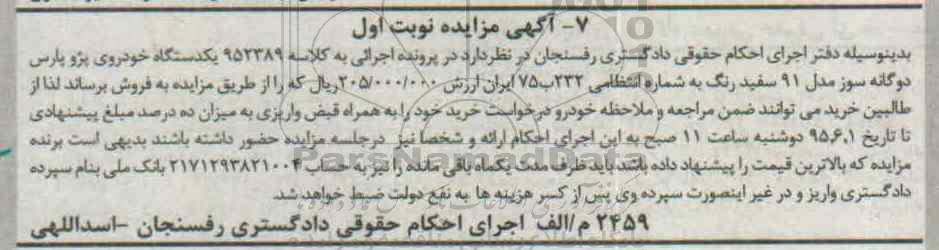 ۷- آگهی مزایده نوبت اول
بدینوسیله دفتر اجرای احکام حقوقی دادگستری رفسنجان در نظر دارد در پرونده اجرائی به کلاسه ۹۵۲۳۸۹ یکدستگاه خودروی پژو پارس
دوگانه سوز مدل ۹۱ سفید رنگ به شماره انتظامی ۲۳۲ب۷۵ ایران ارزش ۲۰۵/۰۰۰/۰۰۰ریال که را از طریق مزایده به فروش برساند لذا از
طالبین خرید می توانند ضمن مراجعه و ملاحظه خودرو درخواست خرید خود را به همراه قبض واریزی به میزان ده درصد مبلغ پیشنهادی
تا تاریخ ۹۵،۶،۱ دوشنبه ساعت ۱۱ صبح به این اجرای احکام ارائه و شخصا نیز درجلسه مزایده حضور داشته باشند بدیهی است برنده
مزایده که بالاترین قیمت را پیشنهاد داده باشد باید ظرف مدت یکماه باقی مانده را نیز به حساب ۲۱۷۱۲۹۳۸۲۱۰۰۴ بانک ملی بنام سپرده
دادگستری واریز و در غیر اینصورت سپرده وی پس از کسر هزینه ها به نفع دولت ضبط خواهد شد.
۲۴۵۹ م/الف اجرای احکام حقوقی دادگستری رفسنجان -اسداللهی